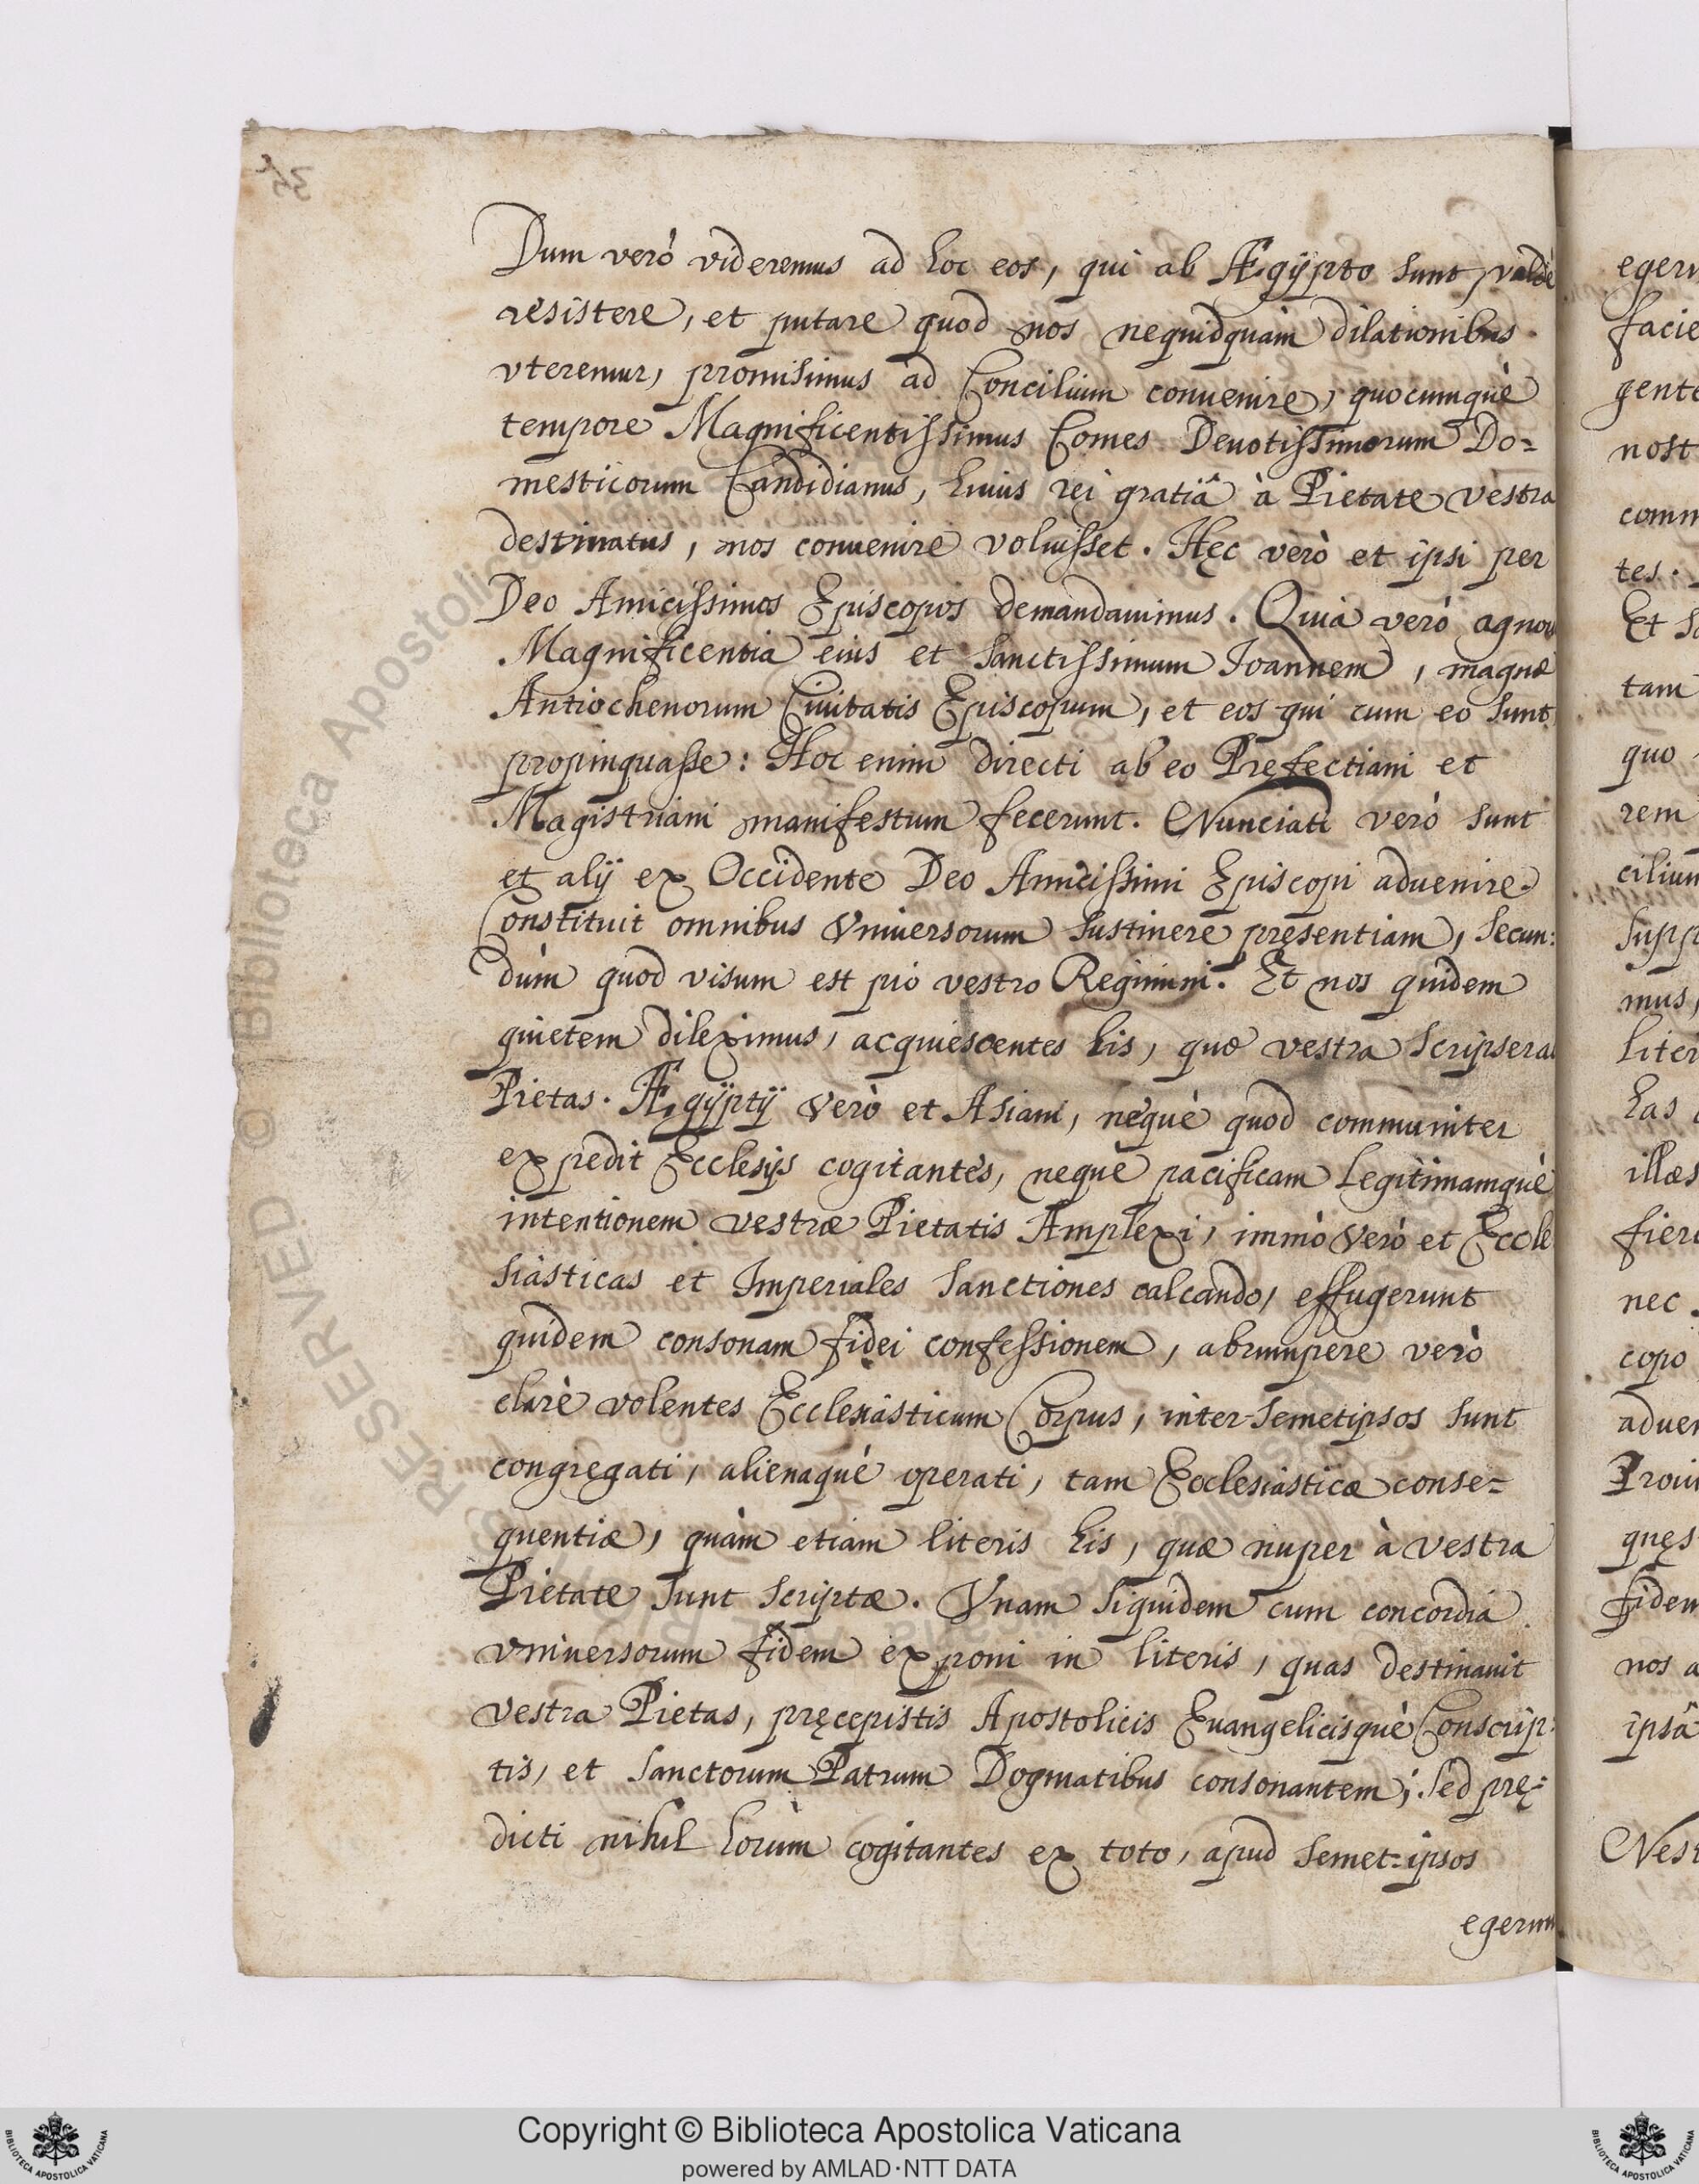 Dum verò videremus ad hoc eos, qui ab Ægÿpto sunt, valdè
resistere, et putare quod nos nequidquàm dilationibus
vteremur, promisimus ad Concilium conuenire, quocumquè
tempore Magnificentissimus Comes Deuotissimorum Do=
mesticorum Candidianus, huius rei gratiâ à Pietate vestra
destinatus, nos conuenire voluisset. Hęc verò et ipsi per
Deo Amicissimos Episcopos demandauimus. Quia verò agnou
Magnificentia eius et Sanctissimum Joannem, magnæ
Antiochenorum Ciuitatis Episcopum, et eos qui cum eo sunt
propinquasse: Hoc enim directi ab eo Pręfectiani et
Magistriani manifestum fecerunt. Nunciati verò sunt
et alÿ ex Occidente Deo Amicissimi Episcopi aduenire.
Constituit omnibus Vniuersorum sustinere pręsentiam, secun:
dùm quod visum est pio vestro Regimini. Et nos quidem
quietem dileximus, acquiescentes his, quæ vestra scripsera
Pietas. Ægÿptÿ verò et Asiani, nequè quod communiter
expedit Ecclesÿs cogitantes, nequè pacificam legitimamquè
intentionem vestræ Pietatis Amplexi, immò verò et Eccle
siasticas et Imperiales sanctiones calcando, effugerunt
quidem consonam fidei confessionem, abrumpere verò
clarè volentes Ecclesiasticum Corpus, inter semetipsos sunt
congregati, alienaquè operati, tam Ecclesiasticæ conse=
quentiæ, quàm etiam literis his, quæ nuper à vestra
Pietate sunt scriptæ. Vnam siquidem cum concordia
vniuersorum fidem exponi in literis, quas destinauit
vestra Pietas, pręcepistis Apostolicis Euangelicisquè Conscrip:
tis, et Sanctorum Patrum Dogmatibus consonantem; Sed prę=
dicti nihil horùm cogitantes ex toto, apud semet=ipsos
egerun
egeru
facie
gente
nost
comm
tes.
Et
tam
quo
rem
cilium
supp
mus,
liter
has
illæs
fier
nec
copo
aduen
Proui
quęs
fidem
nos a
ipsâ
Nest
RESERVED © Biblioteca Apostolica Vaticana
Copyright © Biblioteca Apostolica Vaticana
powered by AMLAD·NTT DATA
BIBLIOTECA APOSTOLICA VATICANA
BIBLIOTECA APOSTOLICA VATICANA